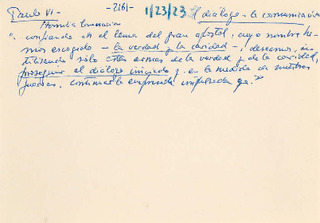 Paulo VI - -216)- 1/23/23 diálogo - la comunicación
Homilía Coronación
" confiando en el lema del gran apóstol, cuyo nombre he-
mos escogido - la verdad y la caridad -, deseamos, 
utilizando sólo estas armas de la verdad y de la caridad,
proseguir el diálogo iniciado y, en la medida de nuestras
fuerzas, continuar la emprendida